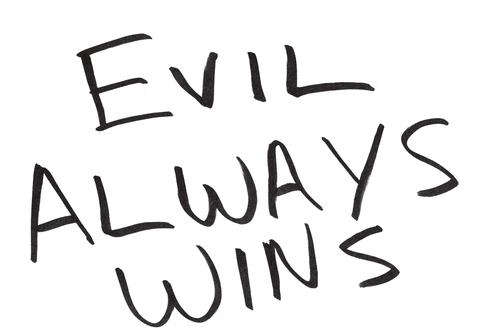 EVIL
ALWAYS
WINS